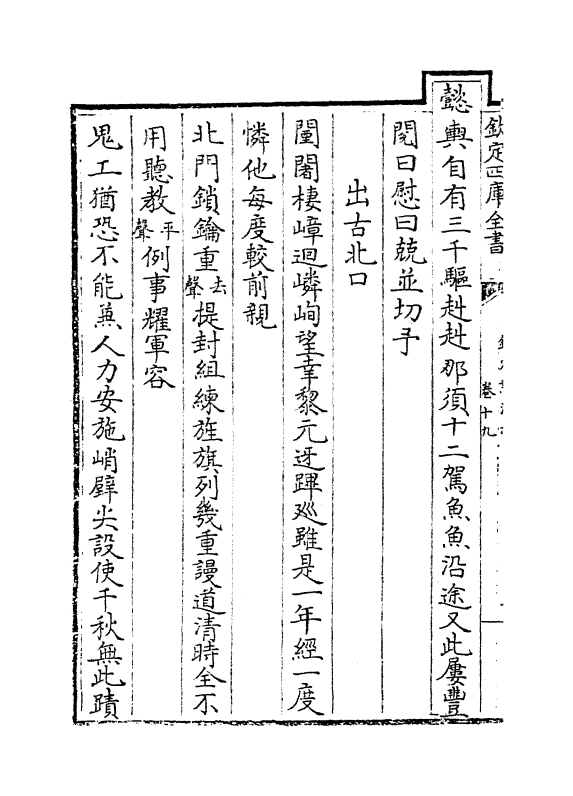 欽定四庫全書
卷十九
懿輿自有三千驅赳赳那須十二駕魚魚沿途又此屢豐
閱曰慰曰兢並切予
出古北口
闉闍棲嶂迴嶙峋望幸黎元迓蹕廵雖是一年經一度
憐他每度較前親
北門鎖鑰重去聲提封組練旌旗列幾重謾道清時全不
用聽教平聲例事耀軍容
鬼工猶恐不能兼人力安施峭壁尖設使千秋無此蹟